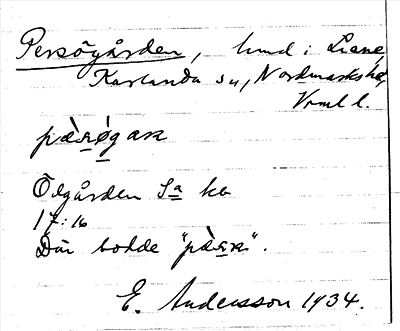 Persögården, hmd i Liane,
Karlanda sn, Nordmarks hd,
Vrml l.
pæ̀ʀøgaɴ
Ödgården Sa ko
17:16
Där bodde "pæ̀ʀsɴ".
E. Andersson 1934.